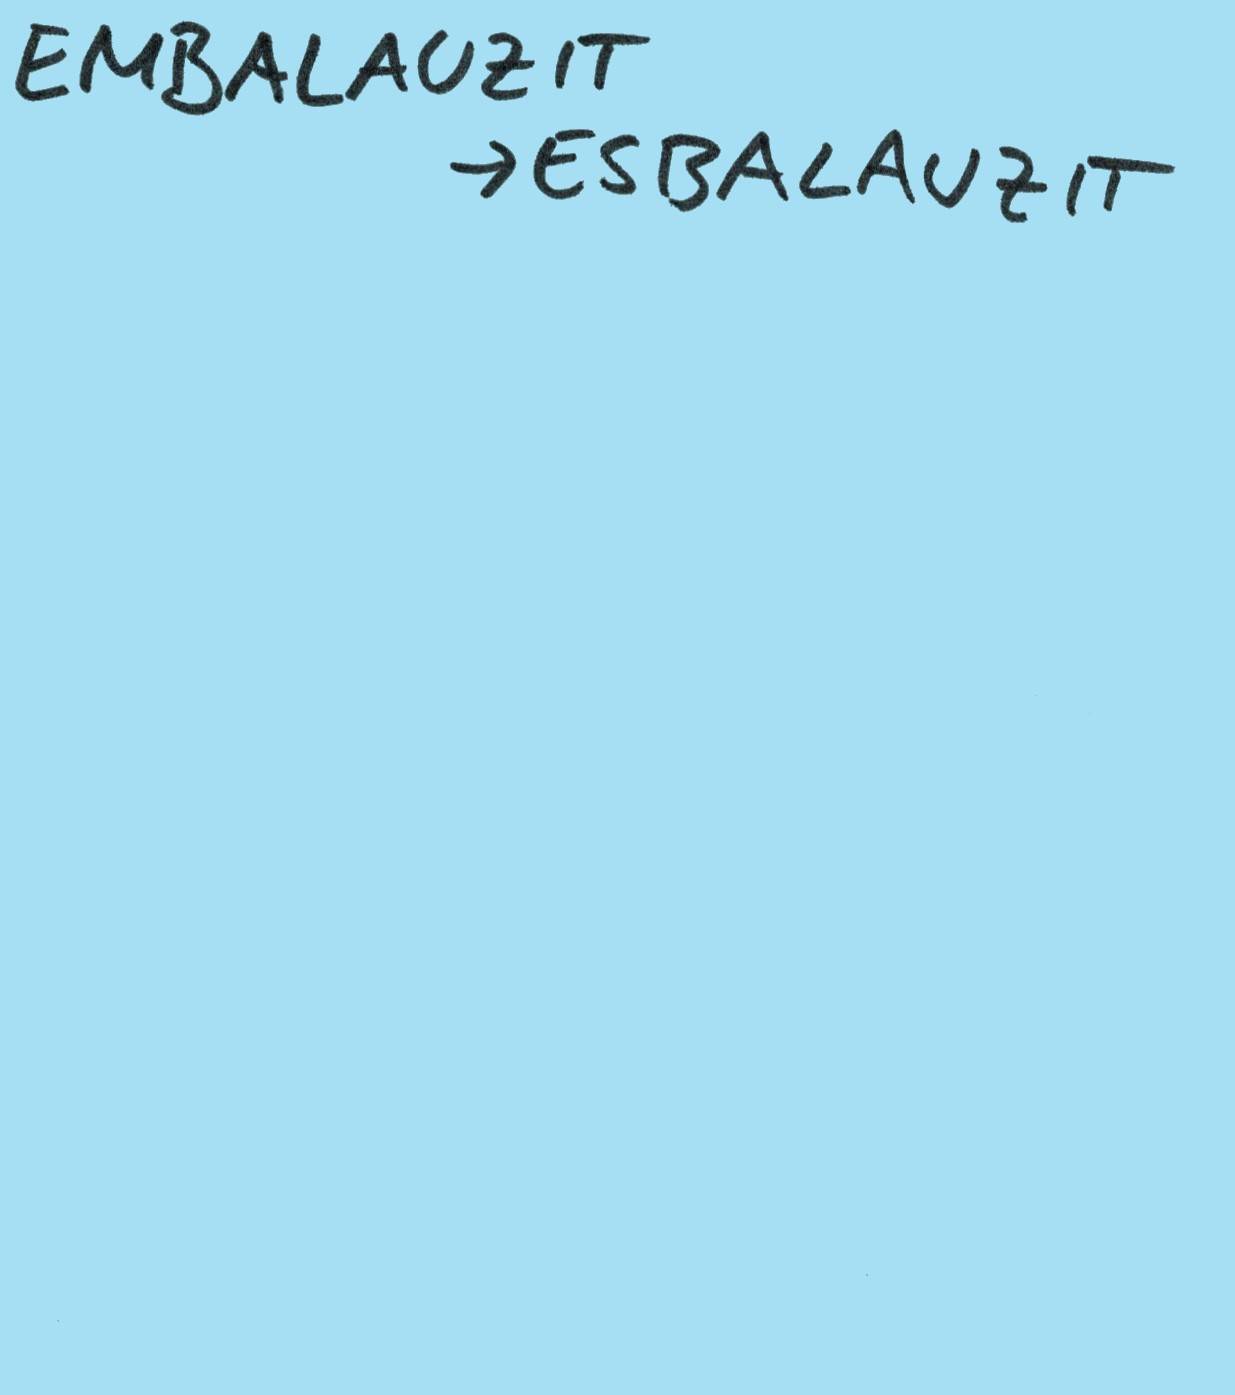 EMBALAUZIT
→ESBALAUZIT